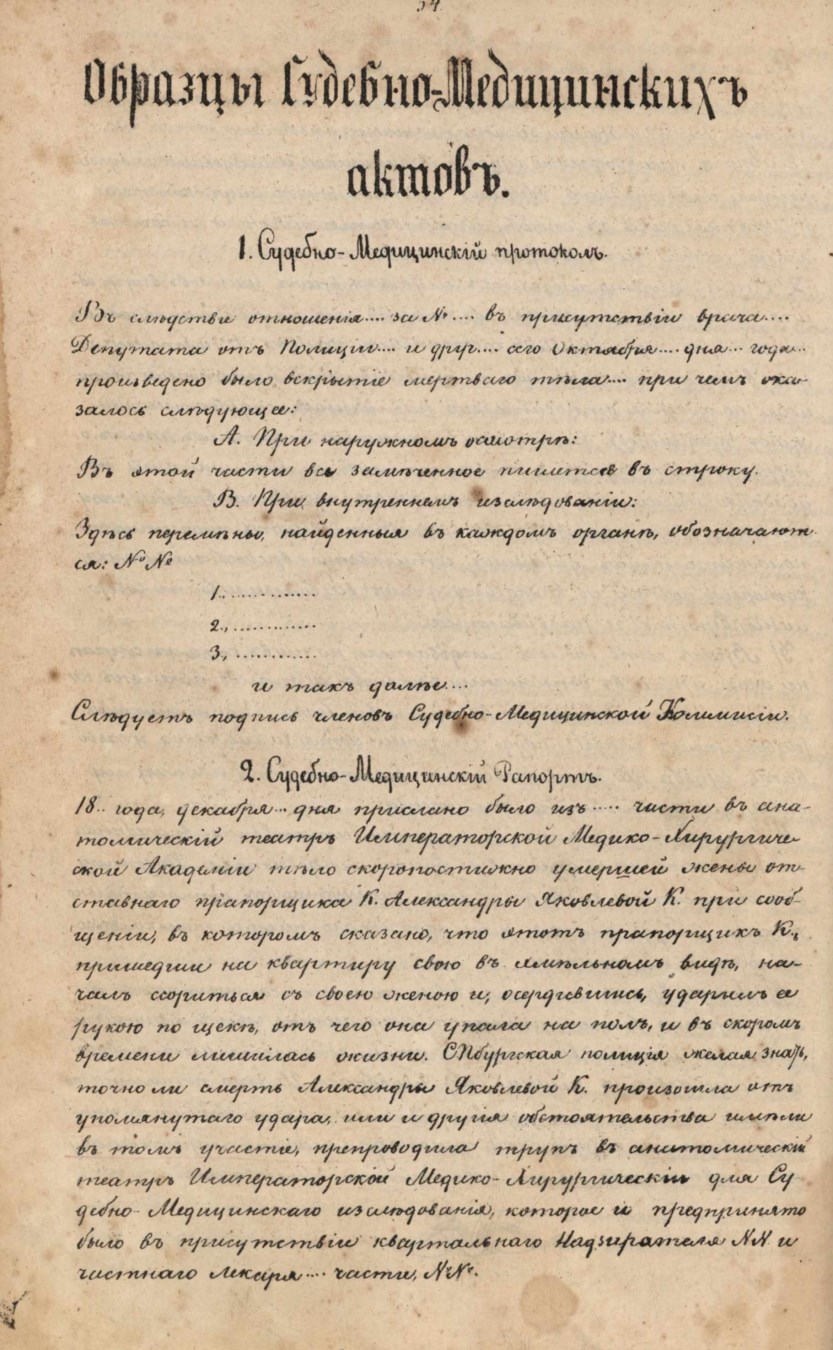 54
Образцы Судебно-Медицинскихъ
актовъ.
1. Судебно-Медицинскій протоколъ.
Въ слѣдствіе отношенія.... за №.... въ присутствіи врача....
Депутата отъ Полиціи.... и друг.... сего Октября.... дня... года...
произведено было вскрытіе мертваго тѣла.... при чемъ ока-
залось слѣдующее:
А. При наружномъ осмотрѣ:
Въ этой части все замѣченное пишется въ строку.
В. При внутреннемъ изслѣдованіи:
Здѣсь перемѣны, найденныя въ каждомъ органѣ, обозначают-
ся: №№
1., ............
2., ............
3, ............
и такъ далѣе....
Слѣдуетъ подпись членовъ Судебно-Медицинской Коммисіи.
2. Судебно-Медицинскій Рапортъ.
18.. года, декабря... дня прислано было изъ ..... части въ ана-
томическій театръ Императорской Медико-Хирургиче-
ской Академіи тѣло скоропостижно умершей жены от-
ставнаго прапорщика К. Александры Яковлевой К. при сооб-
щеніи, въ которомъ сказано, что этотъ прапорщикъ К.,
пришедши на квартиру свою въ хмѣльномъ видѣ, на-
чалъ ссориться съ своею женою и, осердившись, ударилъ ее
рукою по щекѣ, отъ чего она упала на полъ, и въ скоромъ
времени лишилась жизни. СПбургская полиція желая знать,
точно ли смерть Александры Яковлевой К. произошла отъ
упомянутаго удара, или и другія обстоятельства имѣли
въ томъ участіе, препроводила трупъ въ анатомическій
театръ Императорской Медико-Хирургическій для Су
дебно-Медицинскаго изслѣдованія, которое и предпринято
было въ присутствіи квартальнаго Надзирателя NN и
частнаго лекаря.... части, №№.